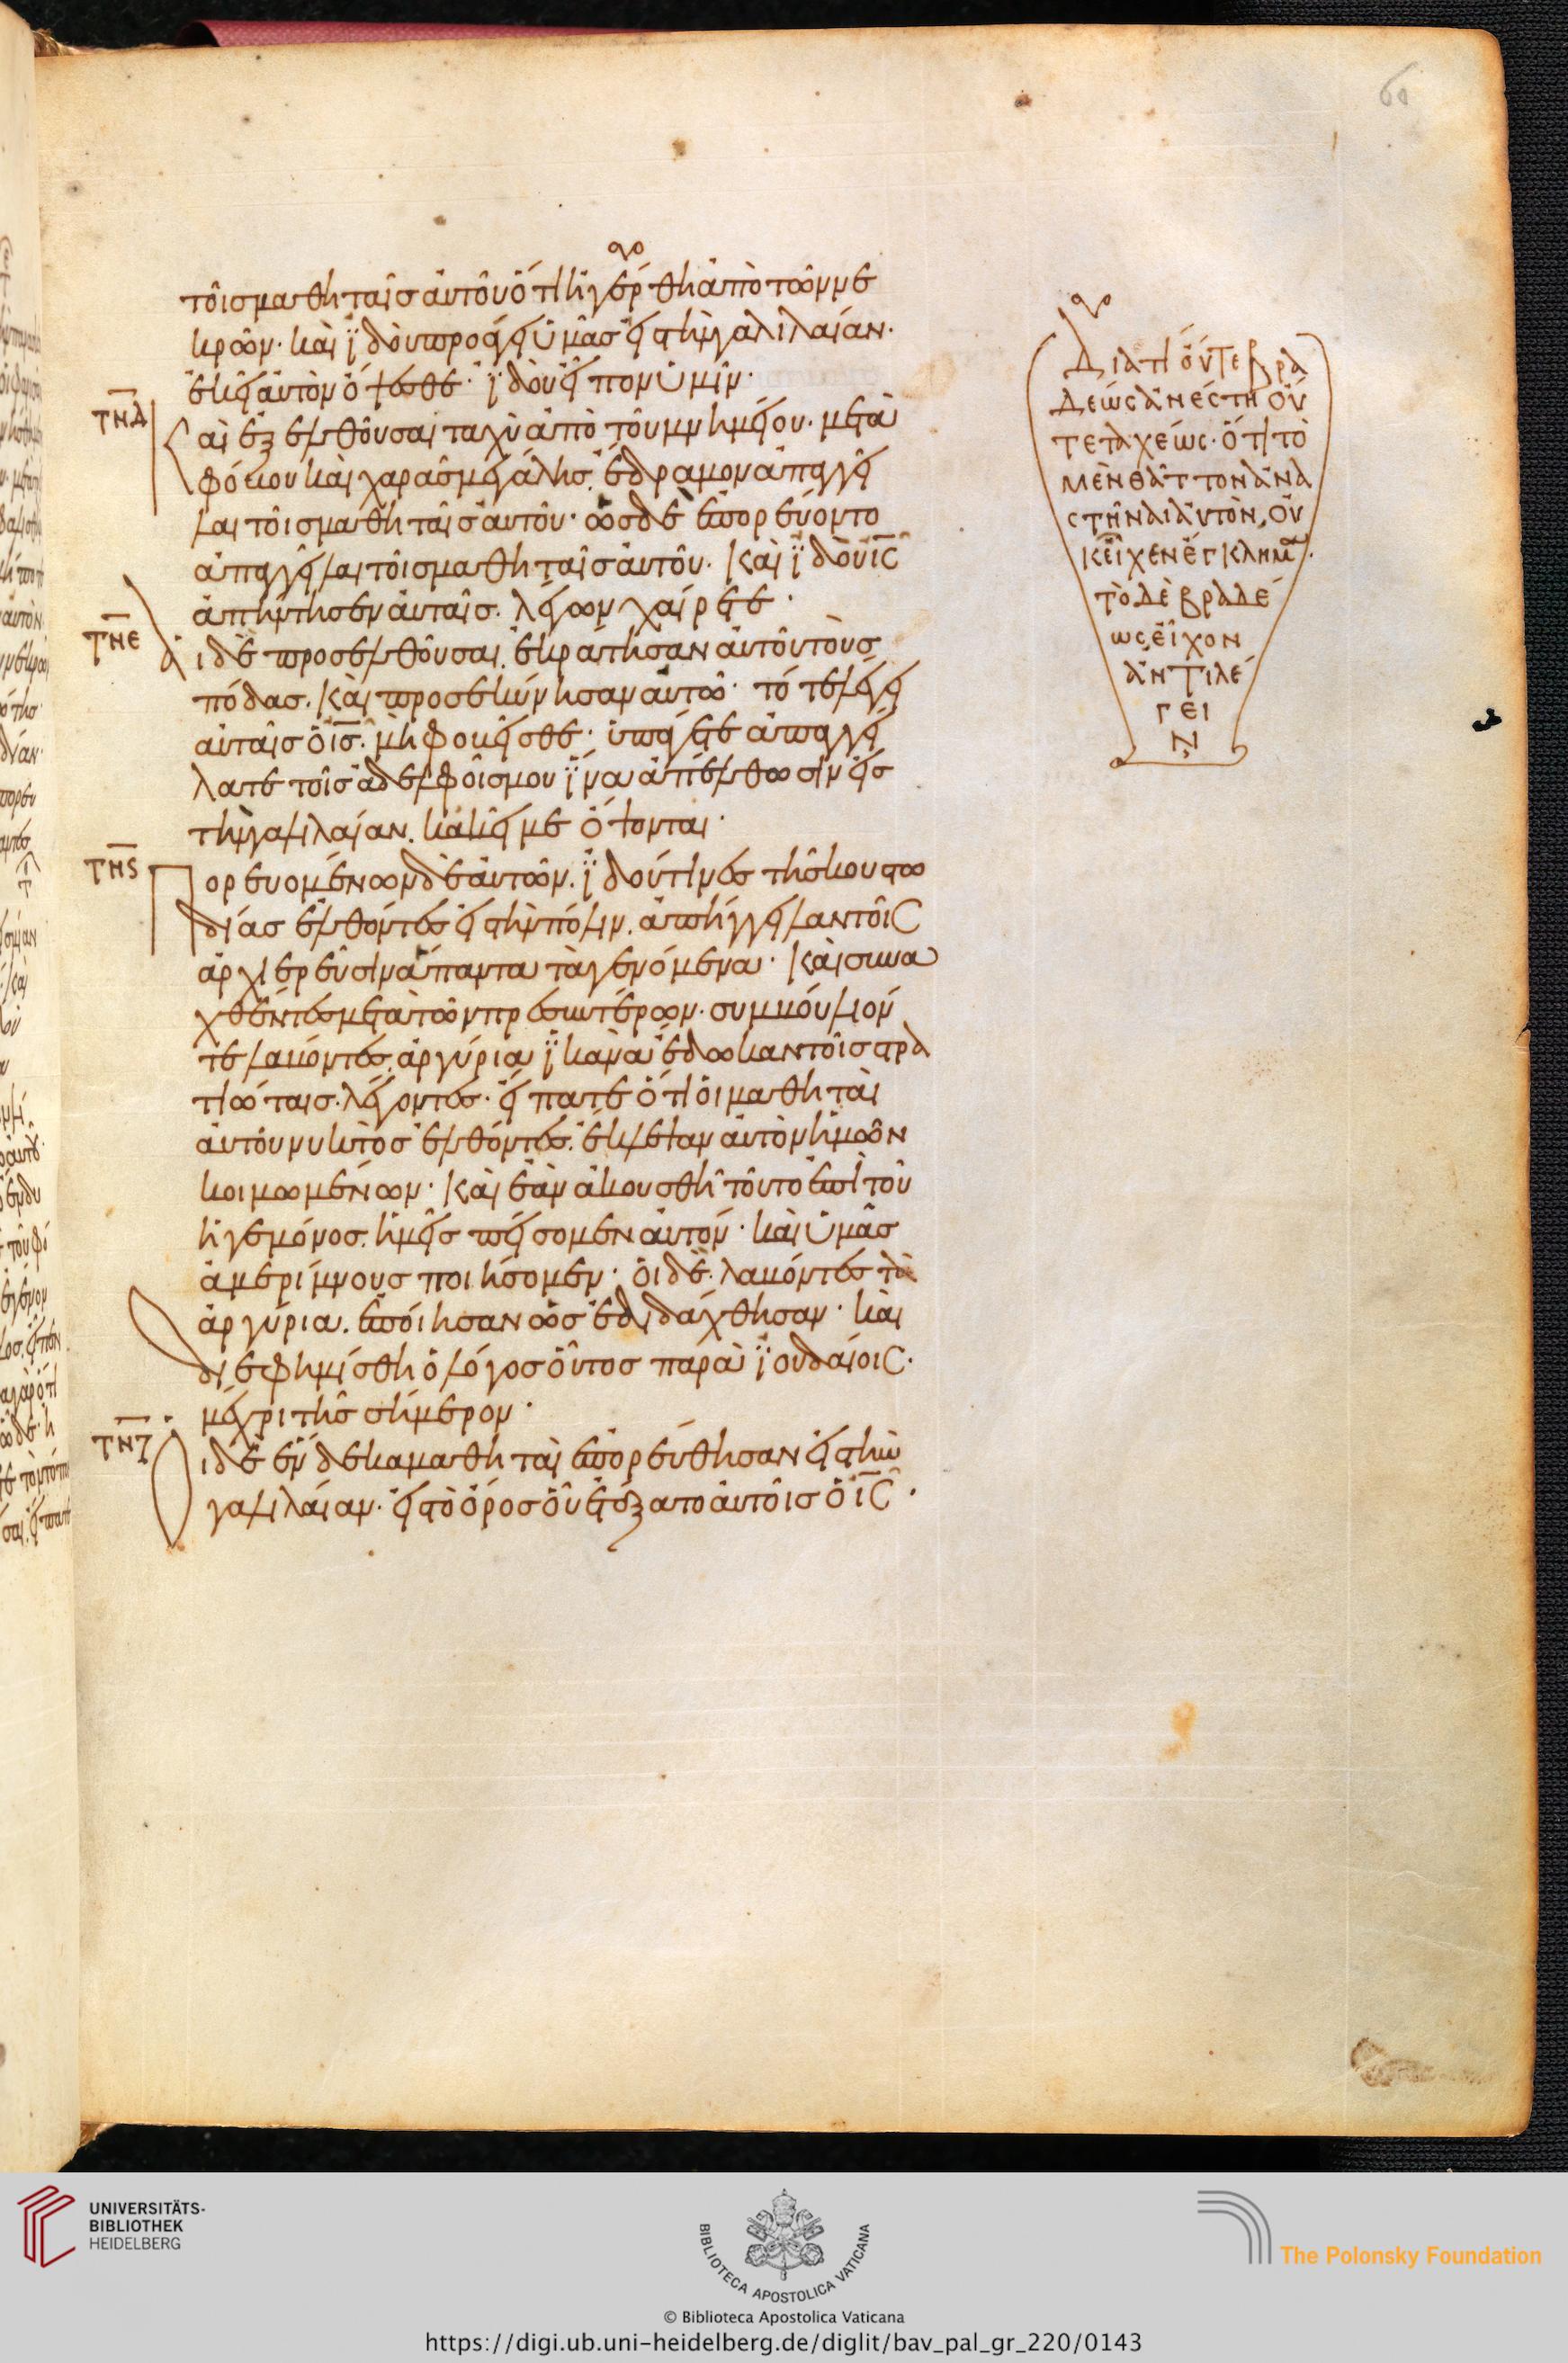 60
τοῖς μαθηταῖς αὐτοῦ ὅτι ἠγέρθη ἀπὸ τῶν νε
κρῶν· καὶ ἰδοὺ προάγει ὑμᾶς εἰς τὴν γαλιλαίαν·
ἐκεῖ αὐτὸν ὄψεσθε· ἰδοὺ εἶπον ὑμῖν·
ΤΝΔ
Καὶ ἐξελθοῦσαι ταχὺ ἀπὸ τοῦ μνημείου· μετὰ
φόβου καὶ χαρᾶς μεγάλης· ἔδραμον ἀπαγγεῖ
λαι τοῖς μαθηταῖς αὐτοῦ· ὡς δὲ ἐπορεύοντο
ἀπαγγεῖλαι τοῖς μαθηταῖς αὐτοῦ· Καὶ ἰδοὺ ις
ἀπήντησεν αὐταῖς· λέγων χαίρετε·
ΤΝΕ
Αἱ δὲ προσελθοῦσαι, ἐκράτησαν αὐτοῦ τοὺς
πόδας· Καὶ προσεκύνησαν αὐτῷ· τότε λέγει
αὐταῖς ὁ ις· μὴ φοβεῖσθε· ὑπάγετε ἀπαγγεί
λατε τοῖς ἀδελφοῖς μου ἵνα ἀπέλθωσιν εἰς
τὴν γαλιλαίαν. κἀκεῖ με ὄψονται·
ΤΝϚ
Πορευομένων δὲ αὐτῶν· ἰδού τινες τῆς κουστω
δίας ἐλθόντες εἰς τὴν πόλιν. ἀπήγγειλαν τοῖς
ἀρχιερεῦσιν ἅπαντα τὰ γενόμενα· Καὶ συνα
χθέντες μετὰ τῶν πρεσβυτέρων· συμβούλιόν
τε λαβόντες, ἀργύρια ἱκανὰ ἔδωκαν τοῖς στρα
τιώταις· λέγοντες· εἴπατε ὅτι οἱ μαθηταὶ
αὐτοῦ νυκτὸς ἐλθόντες· ἔκλεψαν αὐτὸν ἡμῶν
κοιμωμένων· Καὶ ἐὰν ἀκουσθῇ τοῦτο ἐπὶ τοῦ
ἡγεμόνος· ἡμεῖς πείσομεν αὐτόν· καὶ ὑμᾶς
ἀμερίμνους ποιήσομεν· οἱ δὲ λαβόντες τὰ
ἀργύρια. ἐποίησαν ὡς ἐδιδάχθησαν· καὶ
διεφημίσθη ὁ λόγος οὗτος παρὰ ἰουδαίοις·
μέχρι τῆς σήμερον·
ΤΝΖ
Οἱ δὲ ἕνδεκα μαθηταὶ ἐπορεύθησαν εἰς τὴν
γαλιλαίαν· εἰς τὸ ὄρος οὗ ἐτάξατο αὐτοῖς ὁ ις·
Διατί οὔτε βρα
δεως ἀνέστη οὔ
τε ταχέως· ὅτι τὸ
μὲν θᾶττον ἀνα
στῆναι αὐτὸν, οὐ
κ εἶχεν ἔγκλημα·
τὸ δὲ βραδέ
ως, εἶχον
ἀντιλέ
γει
ν
UNIVERSITÄTS-
BIBLIOTHEK
HEIDELBERG
BIBLIOTECA APOSTOLICA VATICANA
The Polonsky Foundation
© Biblioteca Apostolica Vaticana
https://digi.ub.uni-heidelberg.de/diglit/bav_pal_gr_220/0143